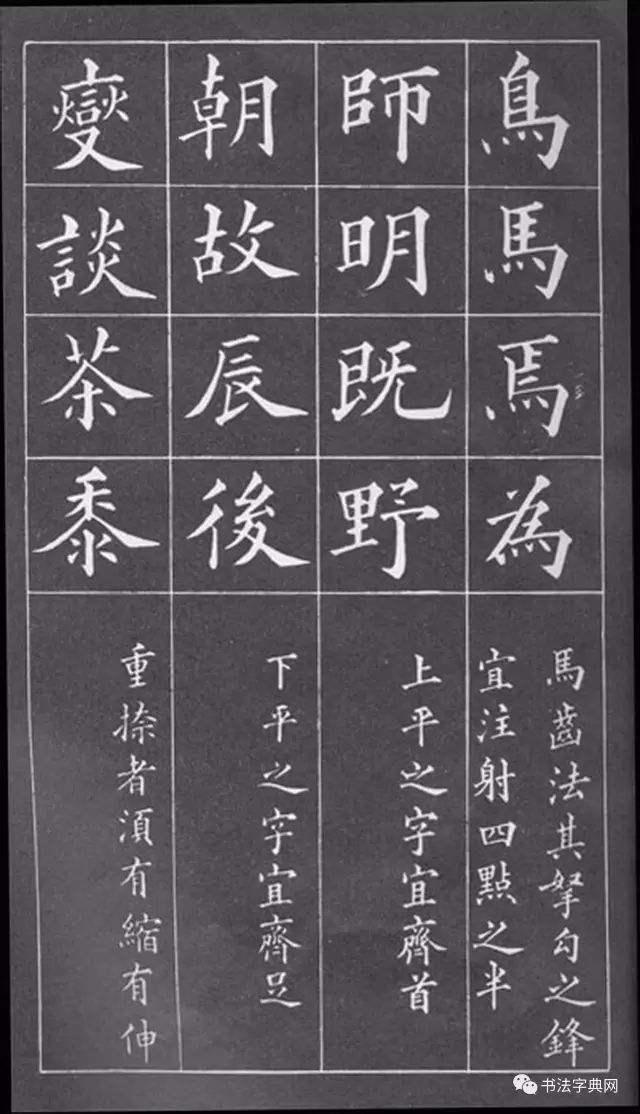 鳥馬焉為
馬齒法其拏勾之鋒
宜注射四點之半
師明既野
上平之字宜齊首
朝故辰後
下平之字宜齊足
變談茶黍
重捺者湏有縮有伸
书法字典网